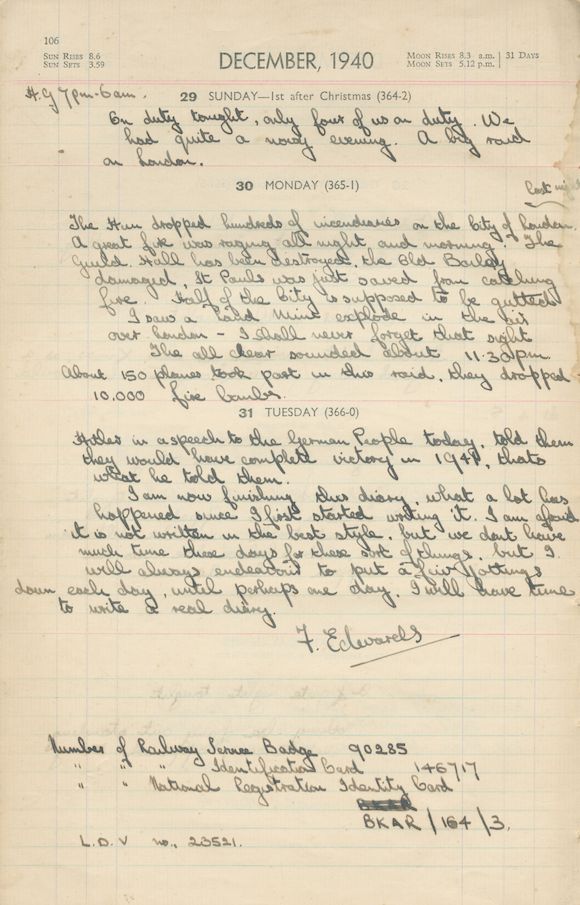 106
SUN RISES 8.6
SUN SETS 3.59
DECEMBER, 1940
MOON RISES 8.3 a.m.
MOON SETS 5.12 p.m.
31 DAYS
H.G 7pm-6am.
29 SUNDAY—1st after Christmas (364-2)
On duty tonight, only four of us on duty. We
had quite a noisy evening. A big raid
on London.
30 MONDAY (365-1)
last night
The Hun dropped hundreds of incendiaries on the City of London.
A great fire was raging all night and morning. The
Guild Hall has been destroyed, the Old Bailey
damaged, St Pauls was just saved from catching
fire. Half of the City is supposed to be gutted
I saw a Land Mine explode in the air
over London – I shall never forget that sight
The all clear sounded about 11.30pm
About 150 planes took part in this raid, they dropped
10,000 fire bombs.
31 TUESDAY (366-0)
Hitler in a speech to the German People today, told them
they would have complete victory in 1941, thats
what he told them.
I am now finishing this diary, what a lot has
happened since I first started writing it. I am afraid
it is not written in the best style, but we dont have
much time these days for these sort of things, but I
will always endeavour to put a few jottings
down each day, until perhaps one day, I will have time
to write a real diary.
F. Edwards
Number of Railway Service Badge 90285
" " " Identification Card 146717
" " National Registration Identity Card
BKAR
BKAR/164/3.
L.D.V no., 23521.